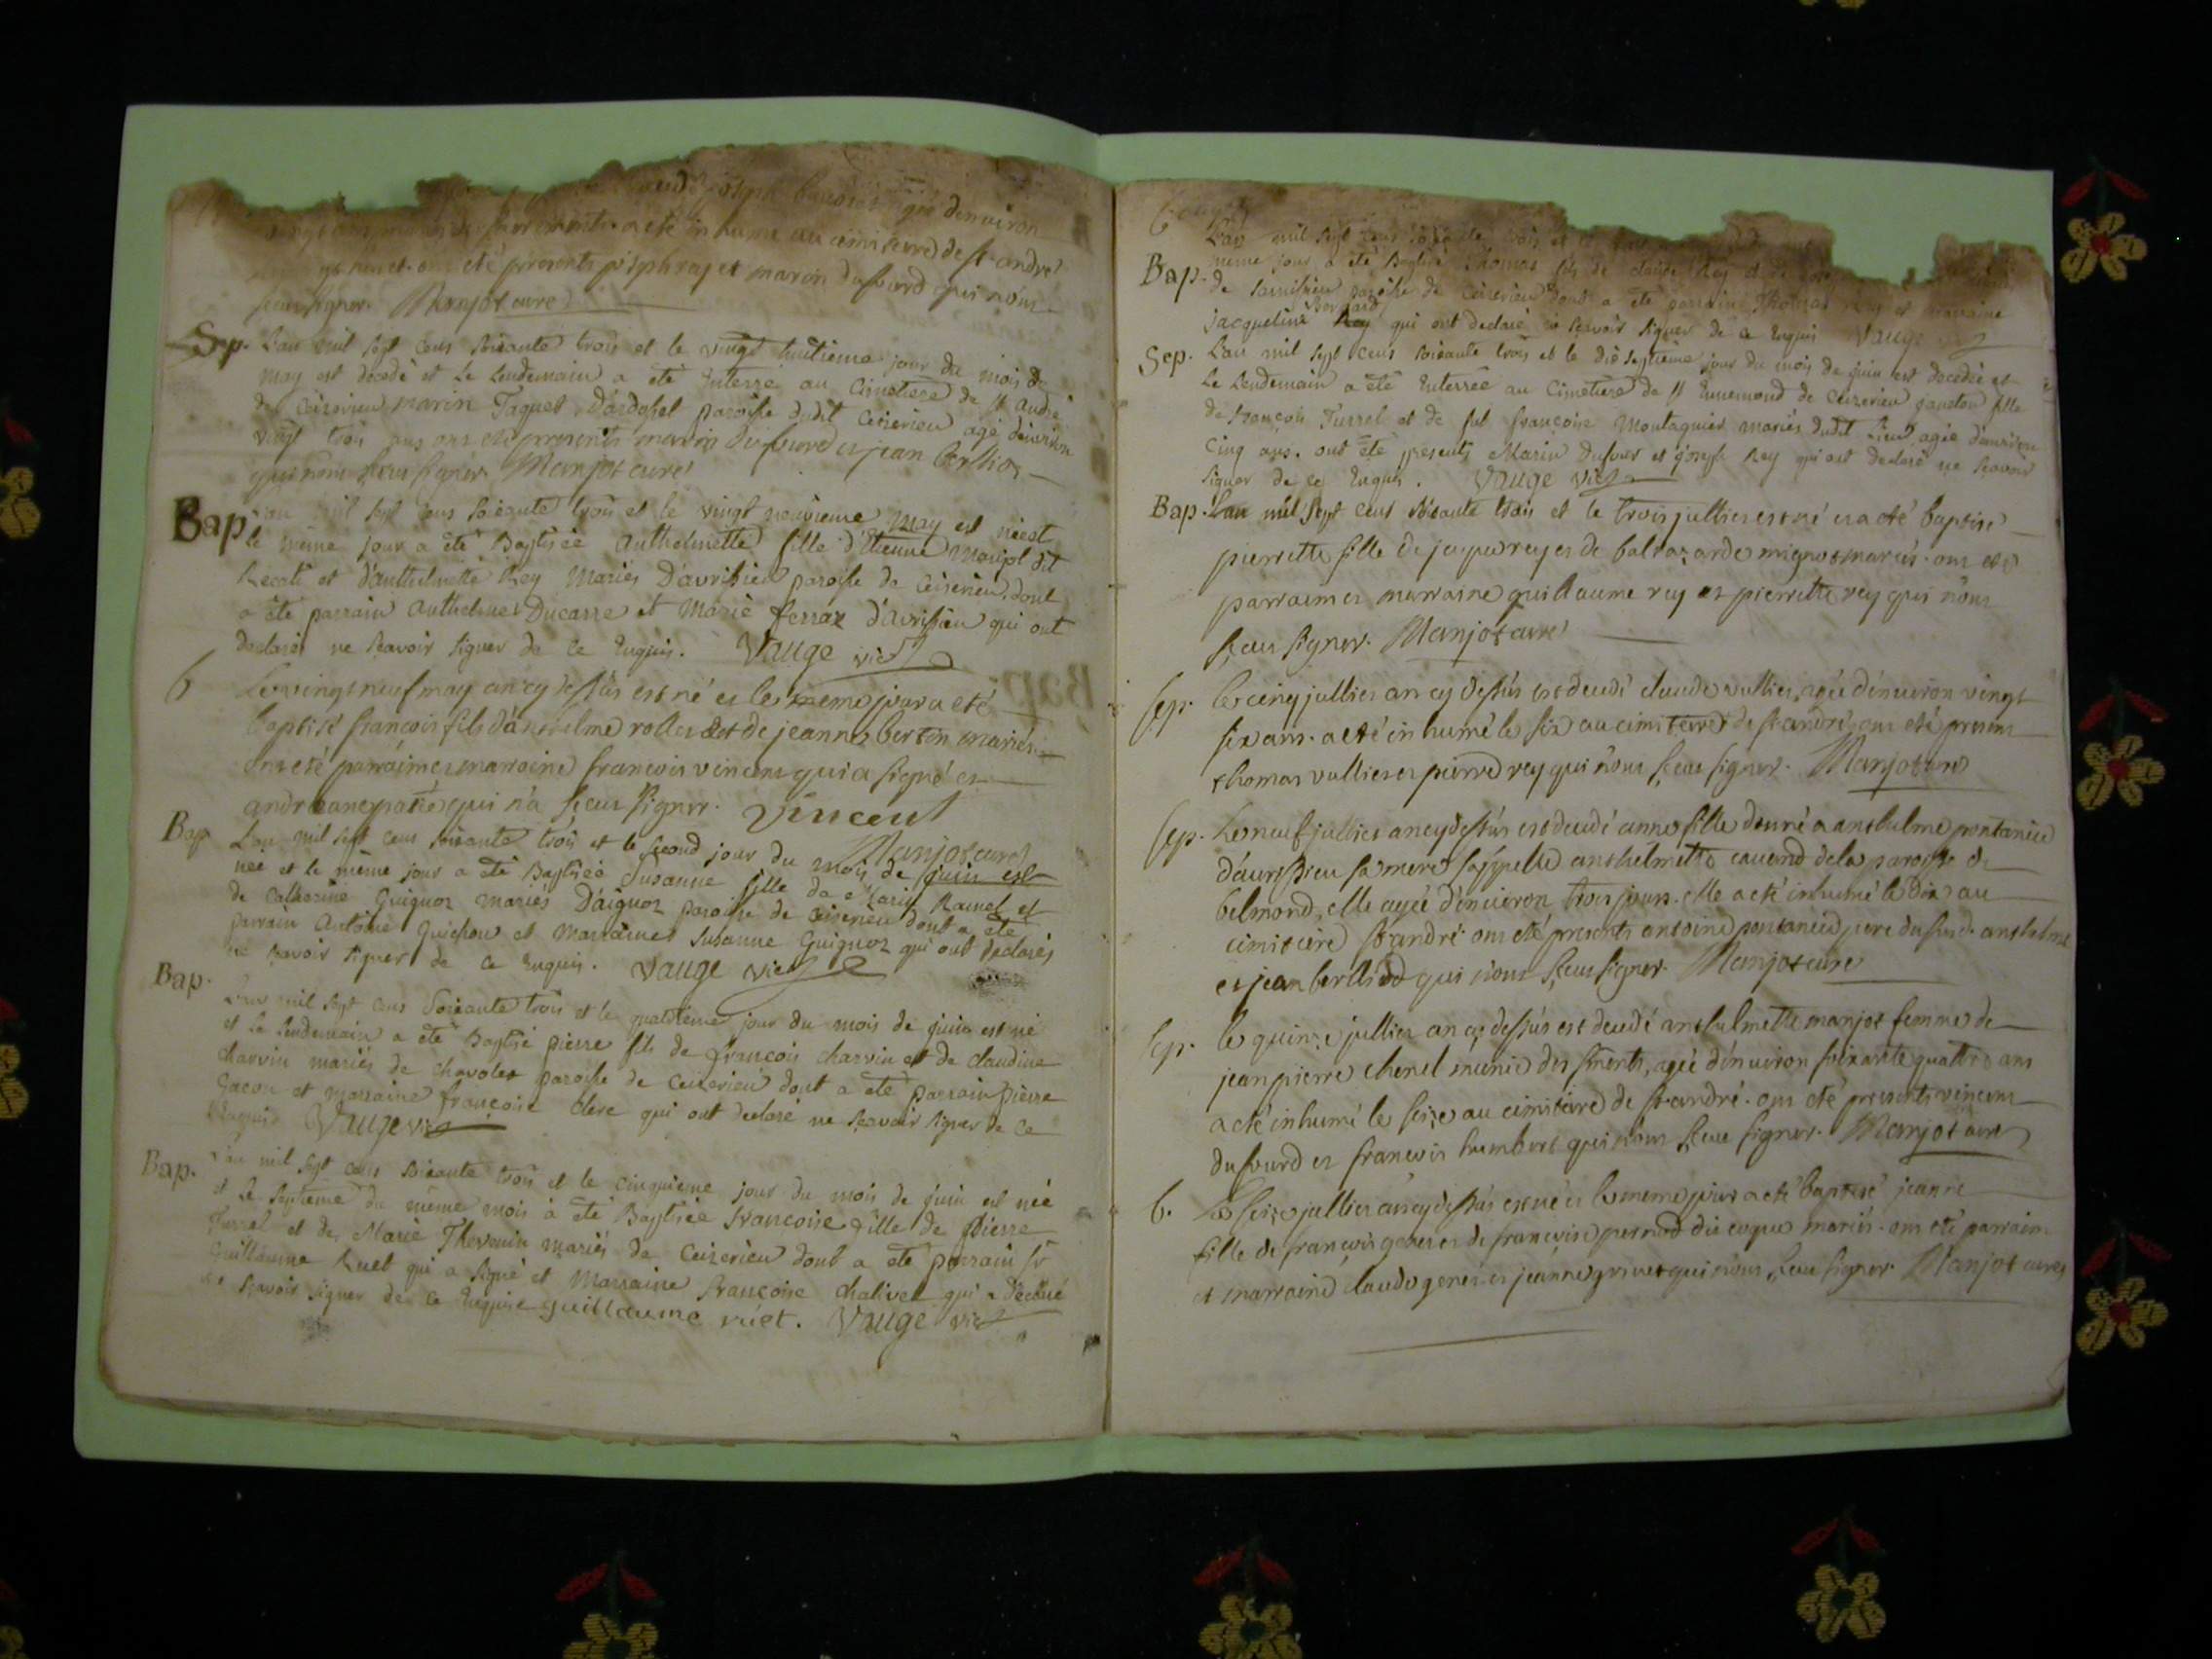 joseph agé denviron
ans munis des sacrements a eté inhumé au cimiterre de st andré
ont eté presents joseph rey et marin dufourd qui n'ont
sceu signer. Manjot curé
Sep. L'an mil sept cens soixante trois et le vingt huitieme jour du mois de
may est decedé et le lendemain a eté Enterré au Cimetiere de st André
de Ceizerieu marin Jaquet d'ardosset paroisse dudit Ceizerieu agé d'environ
vingt trois ans ont eté presents marin dufourd et jean berlliod
qui n'ont sceu signer Manjot curé
Bap. L'an mil sept cens soixante trois et le vingt neuvieme may est née et
le même jour a eté Baptisée Anthelmette fille d'Etienne Manjot dit
Recati et d'anthelmette Rey Mariés D'avrissieu paroisse de Ceizerieu, dont
a eté parrain Anthelme Ducarre et Marie ferraz d'Avrissieu qui ont
declarés ne sçavoir signer de ce Enquis. Vauge vic
b Le vingt neuf may an cy dessus est né et le meme jour a eté
baptisé francois fils d'anthelme rollet et de jeanne bertin mariés
ont eté parraim et marraine francois vincent qui a signé et
andréane qui n'a sceu signer. Vincent
Manjot curé
Bap L'an mil sept cens soixante trois et le second jour du mois de juin est
née et le même jour a eté Baptisée Susanne fille de Marin Ramel et
de Catherine Guignoz mariés D'aignoz paroisse de Ceizerieu dont a eté
parrain Antoine Guichon et Marraine Susanne Guignoz qui ont declarés
ne sçavoir signer de ce Enquis. Vauge vic
Bap. L'an mil sept cens Soixante trois et le quatrieme jour du mois de juin est né
et le lendemain a eté Baptisé pierre fils de françois charvin et de claudine
charvin mariés de chavolet paroisse de Ceizerieu dont a eté parrain pierre
Gacon et marraine françoise clerc qui ont declaré ne sçavoir signer de ce
Enquis Vauge vic
Bap. L'an mil sept cens soixante trois et le cinquieme jour du mois de juin est née
et le septieme du même mois à eté Baptisée françoise fille de Pierre
Turrel et de Marie Thevenin mariés de Ceizerieu dont a eté parrain sr
Guillaume Ruet qui a signé et Marraine françoise chalivet qui a declaré
ne sçavoir signer de ce Enquise guillaume ruet. Vauge vic
L'an mil sept cens soixante trois et le
Bap. même jour a eté Baptisé Thomas fils de claude Rey et de
de paroisse de Ceizerieu dont a eté parrain Thomas Rey et marraine
Bernard
jacqueline Rey qui ont declaré ne sçavoir signer de ce Enquis Vauge vic
Sep. L'an mil sept cens soixante trois et le dix septieme jour du mois de juin est decedée et
le lendemain a eté Enterrée au Cimetiere de st Ennemond de Ceizerieu janeton fille
de françois Turrel et de fut françoise Montagnier mariés dudit Lieu, agée d'environ
cinq ans. ont eté presents Marin dufour et joseph Rey qui ont declaré ne sçavoir
signer de ce Enquis. Vauge vic
Bap. L'an mil sept cens soixante trois et le trois jullies est né et a eté baptisé
pierrette fille de jaque rey et de baltazarde mignot mariés. ont eté
parraim et marraine guillaume rey et pierrette rey qui n'ont
sceu signer. Manjot curé
sep. Le cinq jullies an cy dessus est decedé claude vullies, agée d'environ vingt
six ans. a eté inhumé le six au cimiterre de st andré, ont eté presens
thomas vullies et pierre rey qui n'ont sceu signer. Manjot curé
sep. Le neuf jullies an cy dessus est decedé anne fille donné a anthelme pontanier
d'avrissieu sa mere s'appelle anthelmette de la paroisse de
belmond, elle agée d'environ trois jours. elle a eté inhumé le dix au
cimitiere st andré ont eté presents antoine pontanier pere du sud. anthelme
et jean berlliod qui n'ont sceu signer. Manjot curé
sep. le quinze jullies an cy dessus est decedé anthelmette manjot femme de
jean pierre chenel munie des sments, agée d'environ soixante quattre ans
a eté inhumé le seize au cimitiere de st andré. ont eté presents vincent
dufourd et francois humbert qui n'ont sceu signer. Manjot curé
b. Le seize jullies an cy dessus est né et le meme jour a eté baptisé jeanne
fille de françois genet et de francoise pernod dit coque mariés. ont eté parraim
et marraine claude genet et jeanne grinet qui n'ont sceu signer. Manjot curé